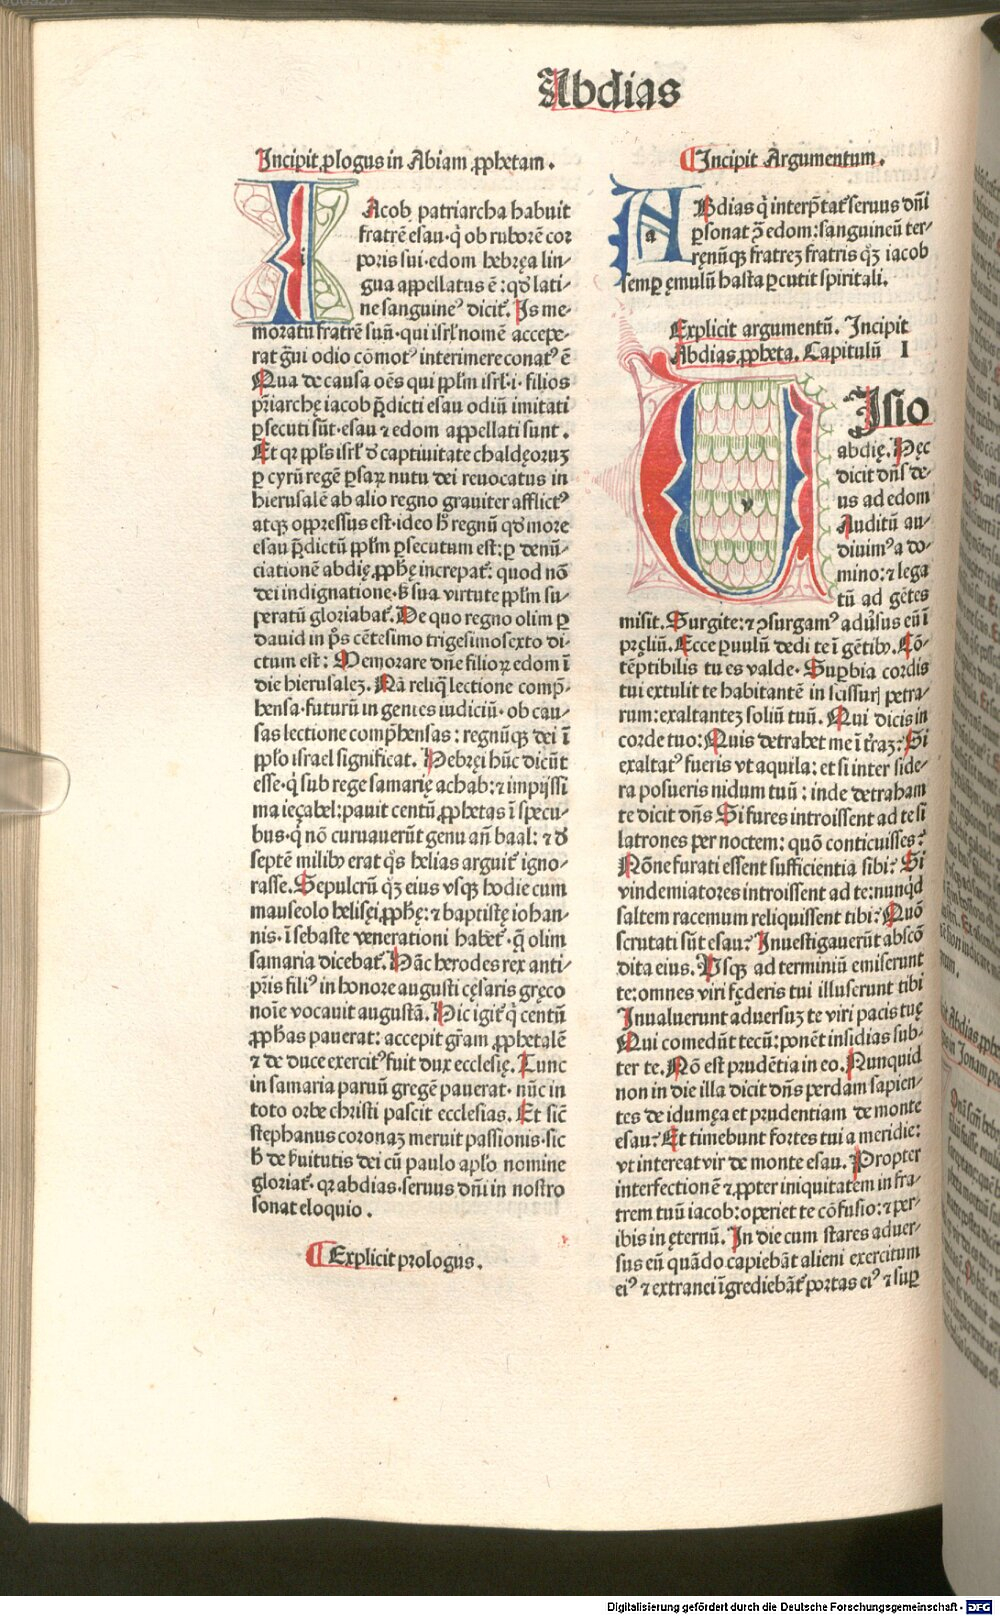 Abdias
Incipit ꝓlogus in Abiam ꝓphetam.
Iacob patriarcha habuit
fratrē esau·q̇ ob ruborē cor
poris sui·edom hebręa lin-
gua appellatus ē:qd̛ lati-
ne sanguineꝰ dicit᷑. Is me-
moratū fratrē suū·qui isrl̛ nomē accepe-
rat gͣui odio cōmotꝰ interimere conatꝰ ē
Qua de causa oēs qui ppl̛m isrl̛·i·filios
pr̄iarchę iacob p̄dicti esau odiū imitati
ꝑsecuti sūt·esau ⁊ edom appellati sunt.
Et qꝛ ppl̛s isrl̛ d̛ captiuitate chaldęoruꝫ
ꝑ cyrū regē ꝑsaꝝ nutu dei reuocatus in
hierusalē ab alio regno grauiter afflictꝰ
atqꝫ oppressus est·ideo h̛ regnū qd̛ more
esau p̄dictū ppl̛m ꝑsecutum est:ꝑ denū-
ciationē abdię ꝓphę increpat᷑: quod nō
dei indignatione·s̛ sua virtute ppl̛m su-
ꝑatū gloriabat᷑. De quo regno olim ꝑ
dauid in p̄s cētesimo trigesimosexto di-
ctum est: Memorare dn̄e filioꝝ edom ī
die hierusaleꝫ. Nā reliq̇ lectione comp̄-
hensa·futurū in gentes iudiciū·ob cau-
sas lectione comp̄hensas: regnūqꝫ dei ī
pplo israel significat. Hebręi hūc dicūt
esse·q̇ sub rege samarię achab:⁊ impijssi
ma ieçabel:pauit centū ꝓphetas ī specu-
bus·q̇ nō curuauerūt genu an̄ baal: ⁊ d̛
septē milibꝰ erat q̇s helias arguit᷑ igno-
rasse. Sepulcrū qꝫ eius vsqꝫ hodie cum
mauseolo helisęi ꝓphę:⁊ baptistę iohan-
nis·ī sebaste venerationi habet᷑·q̄ olim
samaria dicebat᷑. Hāc herodes rex anti-
pr̄is filiꝰ in honore augusti cęsaris gręco
noīe vocauit augustā. Hic igit᷑ q̇ centū
ꝓphas pauerat: accepit gr̄am ꝓphetalē
⁊ de duce exercitꝰ fuit dux ecclesię. Tunc
in samaria paruū gregē pauerat·nūc in
toto orbe christi pascit ecclesias. Et sic̄
stephanus coronaꝫ meruit passionis·sic
h̛ de s̛uitutis dei cū paulo apl̛o nomine
gloriat᷑·qꝛ abdias·seruus dn̄i in nostro
sonat eloquio.
⸿ Explicit prologus.
⸿ Incipit Argumentum.
Abdias q̇ interp̄tat᷑ seruus dn̄i
ꝑsonat ꝯ̄ edom:sanguineū ter-
ręnūqꝫ fratreꝫ fratris qꝫ iacob
semꝑ ęmulū hasta ꝑcutit spiritali.
Explicit argumentū. Incipit
Abdias ꝓpheta. Capitulū I
Visio
abdię. Hęc
dicit dn̄s de-
us ad edom
Auditū au-
diuimꝰ a do-
mino:⁊ lega
tū ad gētes
misit. Surgite:⁊ ꝯsurgamꝰ adu̓sus eū ī
pręliū. Ecce ꝑuulū dedi te ī gētibꝰ. Cō-
tēptibilis tu es valde. Suꝑbia cordis
tui extulit te habitantē in scissurꝭ petra-
rum:exaltanteꝫ soliū tuū. Qui dicis in
corde tuo: Quis detrahet me ī t̛raꝫ? Si
exaltatꝰ fueris vt aquila: et si inter side-
ra posueris nidum tuū: inde detraham
te dicit dn̄s Si fures introissent ad te si
latrones per noctem: quō conticuisses?
Nōne furati essent sufficientia sibi? Si
vindemiatores introissent ad te:nunq̇d
saltem racemum reliquissent tibi? Quō
scrutati sūt esau? Inuestigauerūt abscō
dita eius. Vsqꝫ ad terminū emiserunt
te:omnes viri fęderis tui illuserunt tibi
Inualuerunt aduersuꝫ te viri pacis tuę
Qui comedūt tecū:ponēt insidias sub-
ter te. Nō est prudētia in eo. Nunquid
non in die illa dicit dn̄s perdam sapien-
tes de idumęa et prudentiam de monte
esau? Et timebunt fortes tui a meridie:
vt intereat vir de monte esau. Propter
interfectionē ⁊ ꝓpter iniquitatem in fra-
trem tuū iacob:operiet te cōfusio:⁊ per-
ibis in ęternū. In die cum stares aduer-
sus eū quādo capiebāt alieni exercitum
eiꝰ ⁊ extranei īgrediebāt᷑ portas eiꝰ ⁊ suꝑ
Digitalisierung gefördert durch die Deutsche Forschungsgemeinschaft - DFG